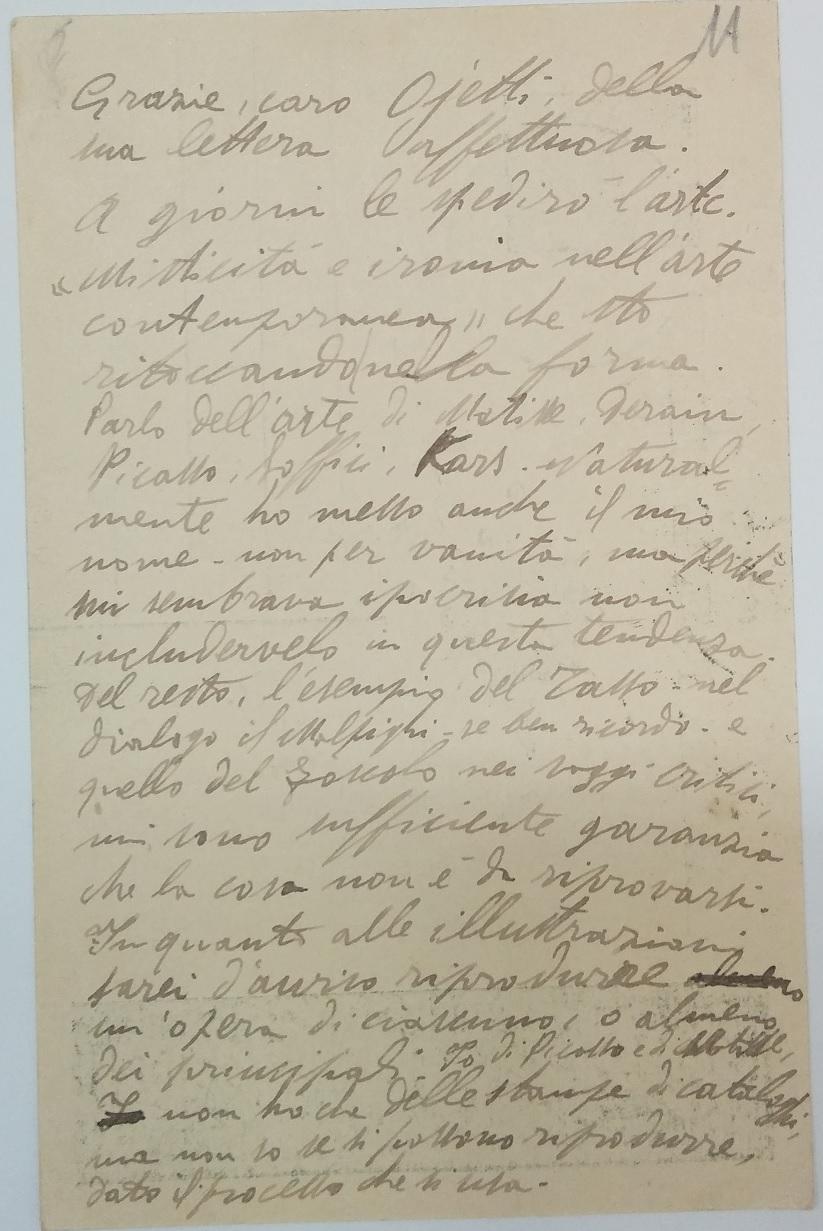 11
Grazie, caro Ojetti, della
sua lettera affettuosa.
A giorni le spedirò l'artc.
"Mitticità e ironia nell'arte
contemporanea" che sto
ritoccando nella forma.
Parlo dell'arte di Matisse, Derain,
Picasso, Soffici, Kars. Natural=
mente ho messo anche il mio
nome - non per vanità, ma perchè
mi sembrava ipocrisia non
includervelo in questa tendenza.
Del resto, l'esempio del Tasso nel
dialogo il Malpighi - se ben ricordo - e
quello del Foscolo nei saggi critici,
mi sono sufficiente garanzia
che la cosa non è da riprovarsi.
In quanto alle illustrazioni
sarei d'avviso riprodurre
un'opera di ciascuno, o almeno
dei principali. Io, di Picasso e di Matisse,
non ho che delle stampe di cataloghi,
ma non so se si possono riprodurre,
dato il processo che si usa.